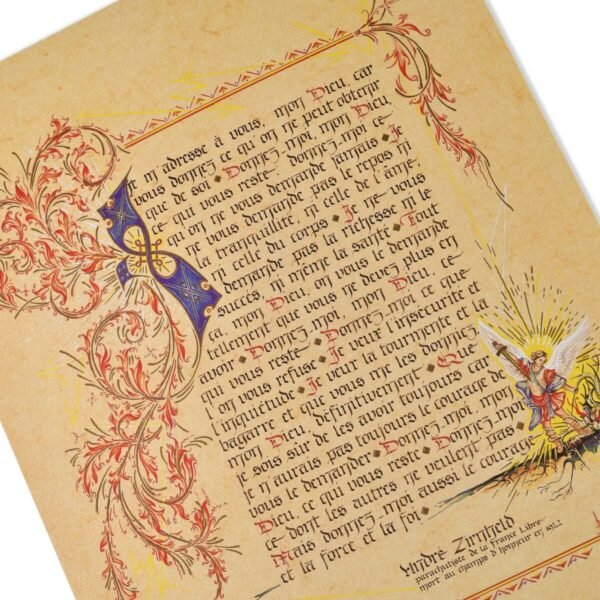 Je m'adresse à vous, mon Dieu, car
vous donnez ce qu'on ne peut obtenir
que de soi • Donnez-moi, mon Dieu,
ce qui vous reste, donnez-moi ce
qu'on ne vous demande jamais • Je
ne vous demande pas le repos ni
la tranquilité, ni celle de l'âme,
ni celle du corps • Je ne vous
demande pas la richesse ni le
succès, ni même la santé • Tout
ça, mon Dieu, on vous le demande
tellement que vous ne devez plus en
avoir • Donnez-moi, mon Dieu, ce-
qui vous reste • Donnez-moi ce que-
l'on vous refuse • Je veux l'insécurité et
l'inquiétude • Je veux la tourmente et la
bagarre et que vous me les donniez,
mon Dieu, définitivement • Que
je sois sûr de les avoir toujours car
je n'aurais pas toujours le courage de
vous le demander • Donnez-moi, mon
Dieu, ce qui vous reste • Donnez-moi
ce- dont les autres ne veulent pas •
Mais donnez-moi aussi le courage
et la force et la foi •
André Zirnheld
parachutiste de la France Libre-
mort au champs d'honneur en 1942